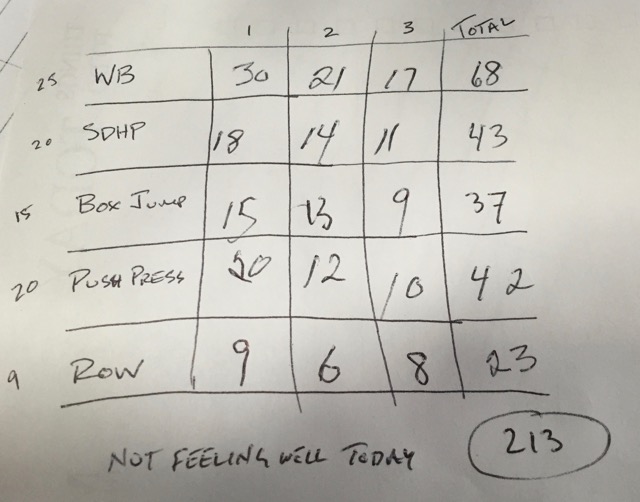 1 2 3 TOTAL
25 WB 30 21 17 68
20 SDHP 18 14 11 43
15 BOX JUMP 15 13 9 37
20 PUSH PRESS 20 12 10 42
9 ROW 9 6 8 23
NOT FEELING WELL TODAY 213